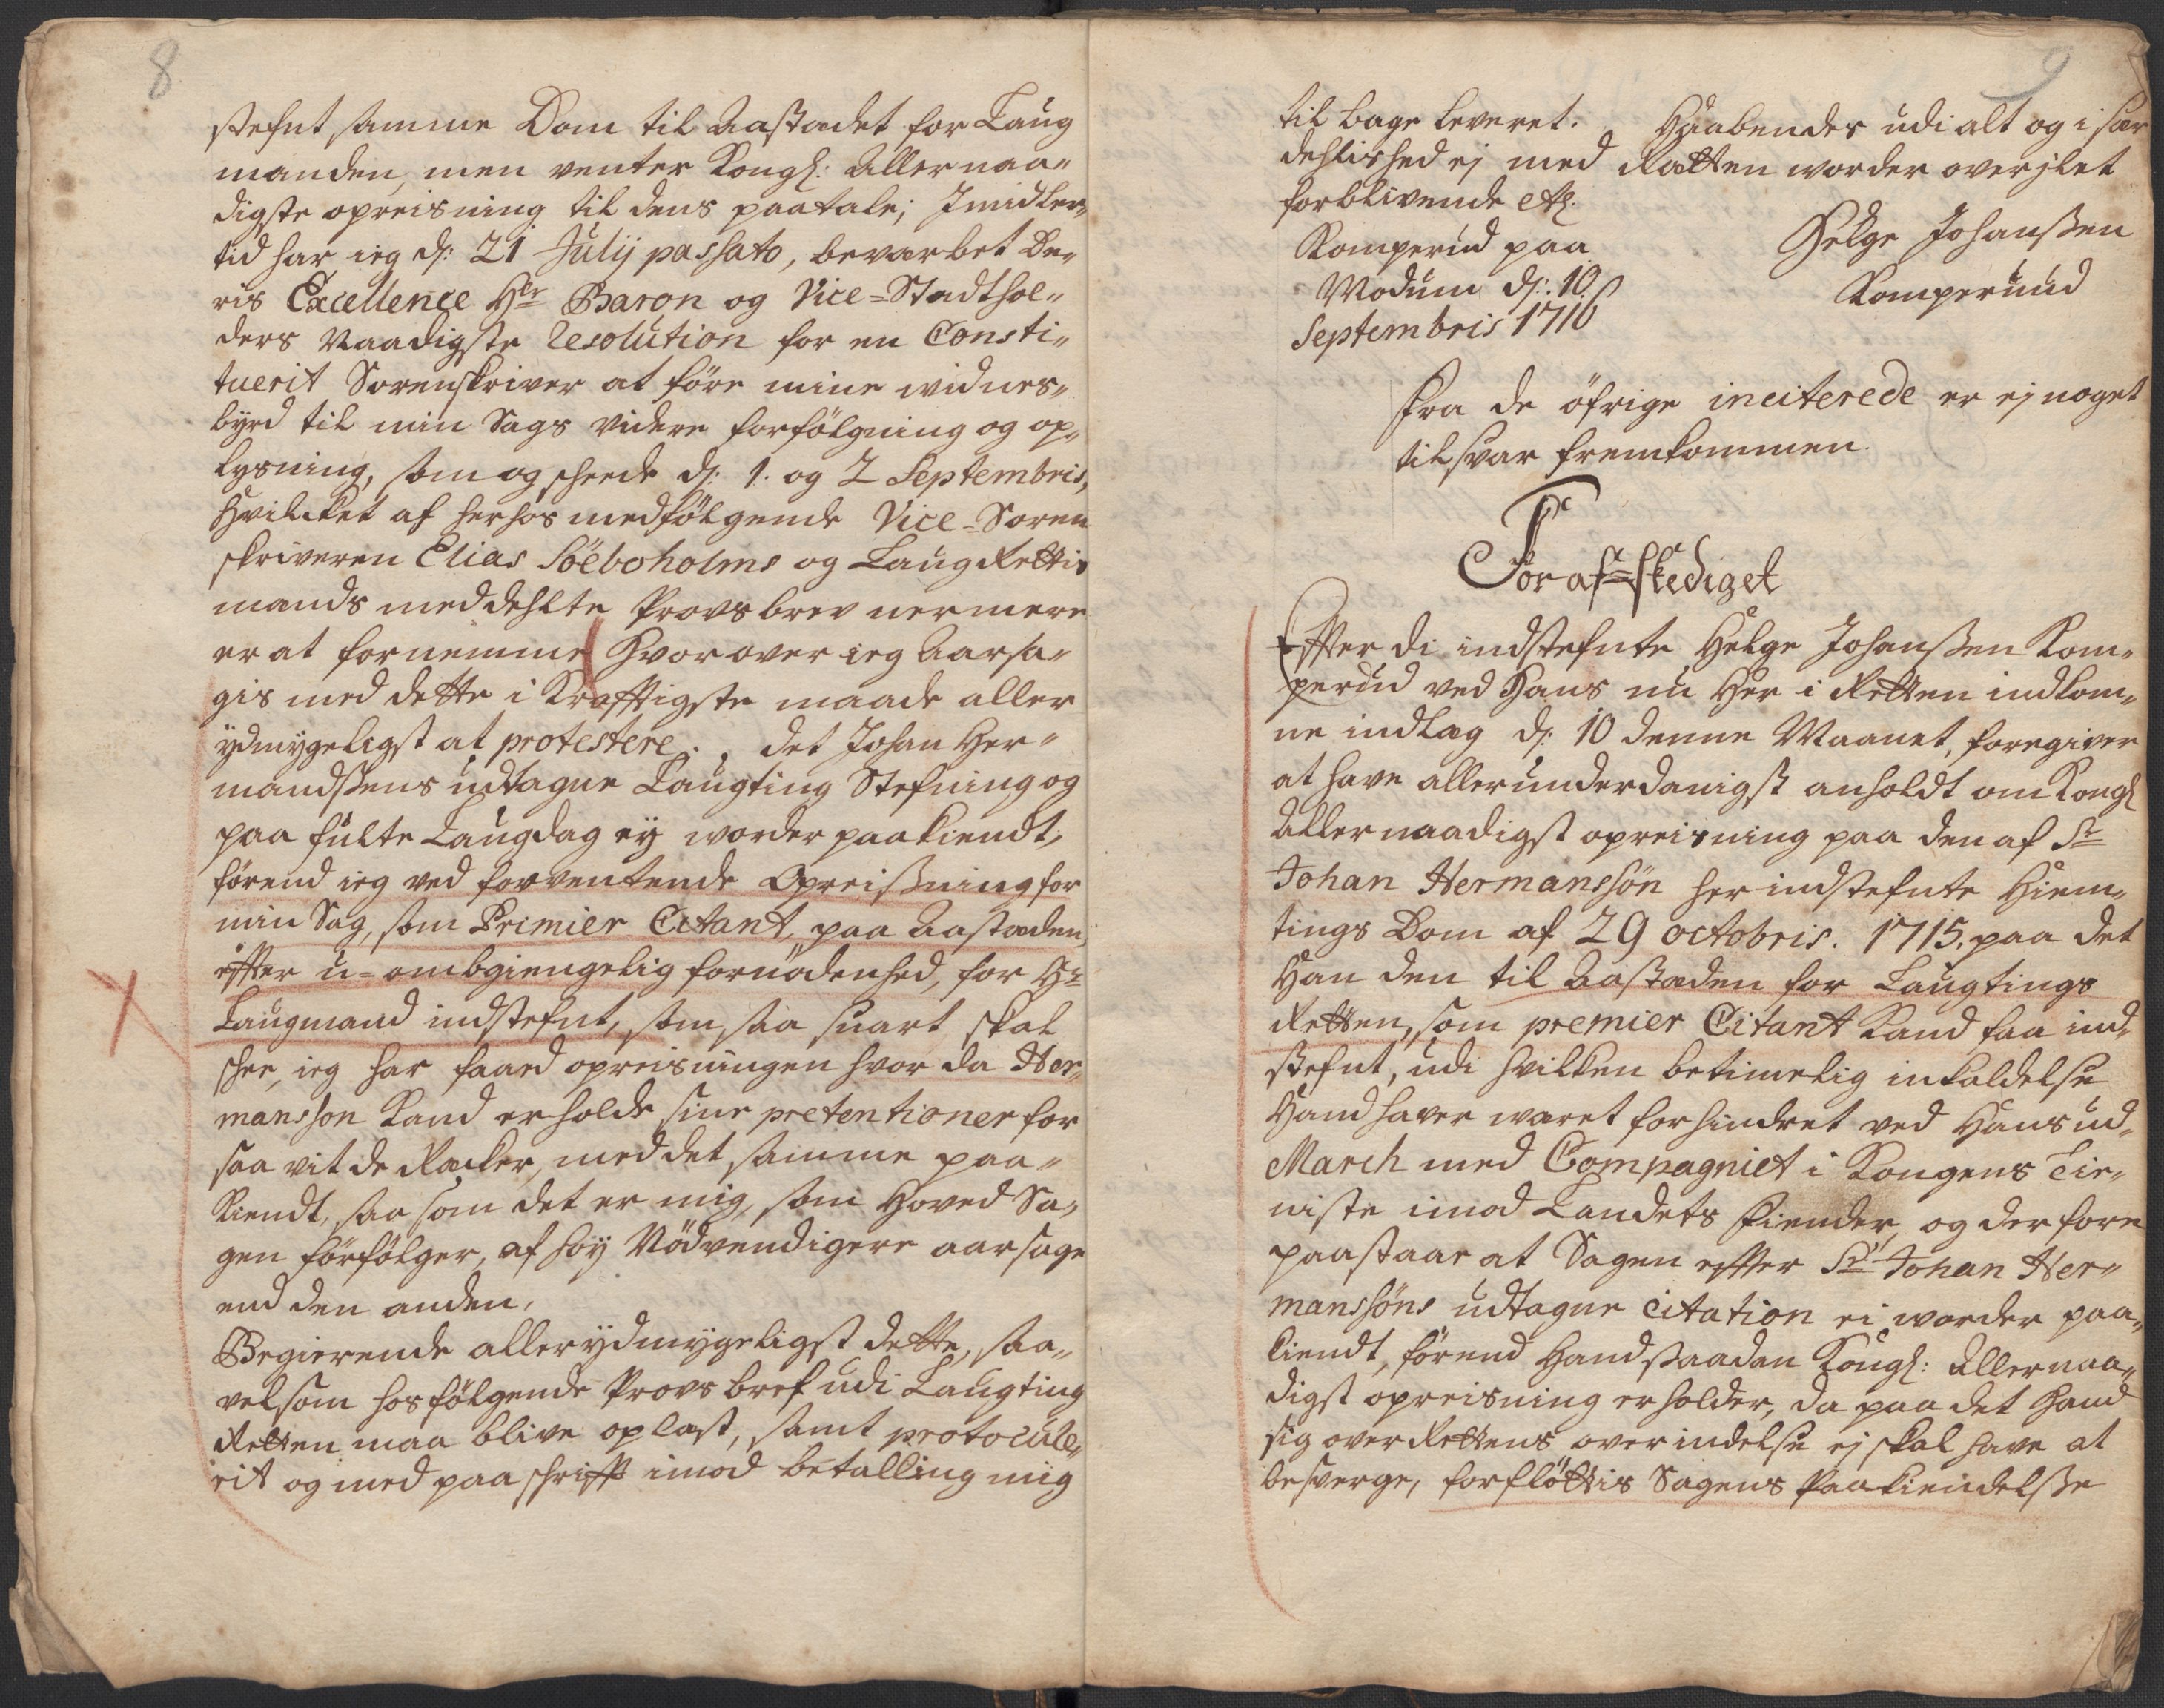 8
stefnt samme Dom til Aastædet for Laug
manden, men venter Kongl: Allernaa„
digste opreisning til dens paatale; Imidler„
tid har ieg d: 21 Julij passato, bevarbet De„
ris Excellence Hr Baron og Vice=Stadthol„
ders Naadigste resolution for en Consti„
tuerit Sorenskriver at före mine widnes„
byrd til min Sags videre forfölgning og op„
lysning, som og scheede d: 1. og 2 Septembris,
Hvilcket af herhos medfölgende Vice=Soren
skriveren Elias Söeboholms og Laug Rettis
mænds meddehlte Provsbrev nermere
er at fornemme Hvorover ieg Aarsa„
gis med dette i Krafftigste maade aller
ydmygeligst at protestere. det Johan Her„
mandsens udtagne Laugting Stefning og
paa fulte Laugdag ey worder paakiendt,
förend ieg ved forventende Opreisning for
min Sag, som Primier Citant, paa Aastæden
efter u=ombgiengelig fornödenhed, for Hr
Laugmand indstefnt, som saa snart skal
schee, ieg har faaed opreisningen hvor da Her„
mansson Kand erholde sine pretentioner for
saa vit de Racker, med det samme paa„
kiendt, saa som det er mig, som Hoved Sa„
gen forfölger, af höy Nödvendigere aarsage
end den anden.
Begierende allerydmygeligst dette, saa„
velsom hosfölgende Provsbref udi Laugting
Retten maa blive oplæst, samt protocule„
rit og med paaschrifft imod betalling mig
9
til bage leveret. Haabendes udi alt og i sær
dehlished ej med Rætten worder overjlet
forblivende etc.
Komperud paa
Modum d: 10
Septembris 1716
Helge Johanssen
Komperuud
Fra de öfrige inciterede er ej noget
tilsvar fremkommen.
For af=skediget
Efter di indstefnte Helge Johanssen Kom„
perud ved Hans nu Her i Retten indkom„
ne indlæg d: 10 denne Maanet, foregiver
at have allerunderdanigst anholdt om Kongl
Allernaadigst opreisning paa den af Sr
Johan Hermanssön her indstefnte Hiem„
tings Dom af 29 octobris. 1715. paa det
Han den til Aastæden for Laugtings
Retten, som premier Citant kand faa ind„
stefnt, udi hvilken betimelig inkaldelse
Hand haver wæret forhindret ved Hans ud„
March med Compagniet i Kongens Tie„
niste imod Landets Fiender, og derfore
paastaar at Sagen efter Sr Johan Her„
manssöns udtagne citation ei worder paa„
kiendt, förend Hand saadan Kongl: Allernaa„
digst opreisning erholder, da paa det Hand
sig over Rettens overindelse ej skal have at
besverge, forflöttis Sagens Paakiendelsse